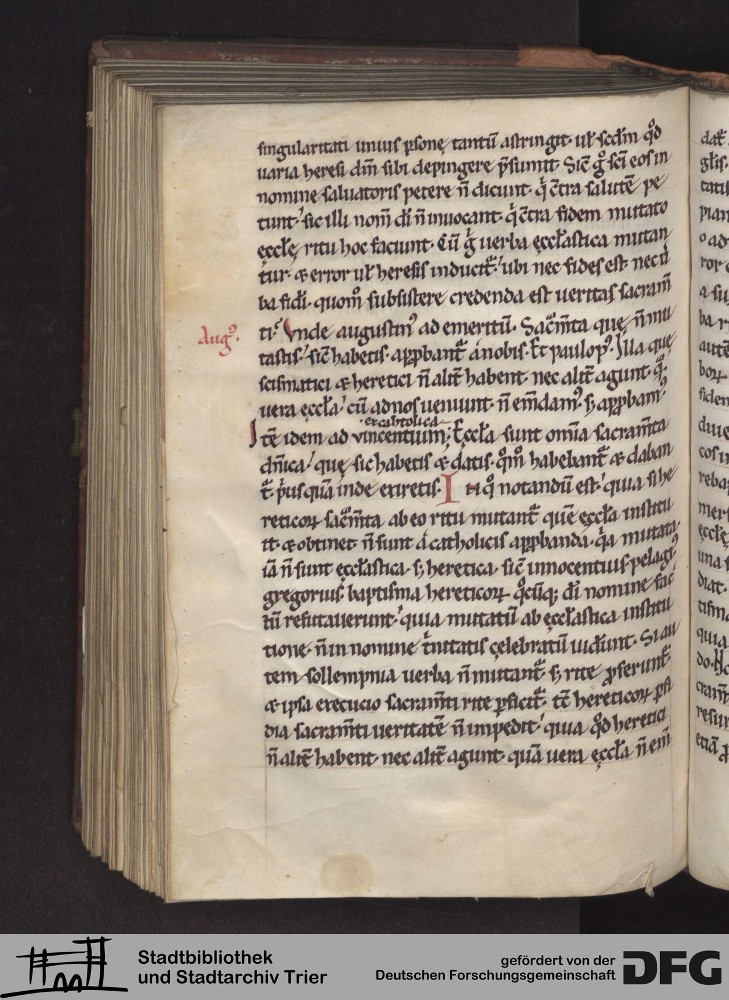 singularitati unius psonę tantū astringit· ul̄ scd̄m qd̊
uaria heresi dm̄ sibi depingere p̄sumit· Sic̄ g̊ sc̄i eos in
nomine saluatoris petere n̄ dicunt· q̇ c̄tra salutē pe
tunt· sic illi nom̄ di n̄ inuocant· q̇ c̄tra fidem mutato
ęcclę ritu hoc faciunt· Cū g̊ uerba ęccl̄astica mutan
tur· & error ul̄ heresis inducit᷑· ubi nec fides est· nec ū
ba fidi· quom̊ subsistere credenda est ueritas sacram̄
ti· Vnde augustin᷒ ad emeritū· Sac̄m̄ta quę n̄ mu
Aug᷒·
tastis· sic̄ habetis· apꝓbant᷑ a nobis· Et paulo p᷒· Illa quę
scismatici & heretici n̄ alit̄ habent· nec alit̄ agunt· q̄·
uera ęccl̄a· cū ad nos ueniunt· n̄ em̄dam᷒· s; apꝓbam᷒·
et catholica
Itē idem ad vincentium; Eccl̄a sunt om̄ia sacram̄ta
dn̄ica· quę sic habetis & datis· qm̊ habebant᷑ & daban
t᷑ p̓us quā inde exiretis· In q̊ notandū est· quia si he
reticoꝝ sac̄m̄ta ab eo ritu mutant᷑ quē ęccl̄a institu
it· & obtinet· n̄ sunt a catholicis apꝓbanda· q̓a mutata
iā n̄ sunt ęccl̄astica· s; heretica· sic̄ innocentius pelagi᷒
gregorius· baptisma hereticoꝝ qc̊ūq; di nomine fac
tū refutauerunt· quia mutatū ab ęccl̄astica institu
tione· n̄ in nomine t̓nitatis cęlebratū uider̄unt· Si au
tem sollempnia uerba n̄ mutant᷑· s; rite ꝓferunt᷑·
& ipsa execucio sacram̄ti rite ꝑficit᷑· tc̄ hereticoꝝ ꝑfi
dia sacram̄ti ueritatē n̄ impedit· quia qd̊ heretici
n̄ alit̄ habent· nec alit̄ agunt· quā uera ęccl̄a n̄ em̄
Stadtbibliothek
und Stadtarchiv Trier
gefördert von der
Deutschen Forschungsgemeinschaft
DFG